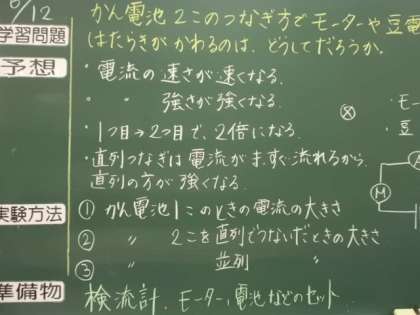 9/12
学習問題
かん電池2このつなぎ方でモーターや豆電
はたらきがかわるのは、どうしてだろうか。
予想
・電流の速さが速くなる。
・ 〃 強さが強くなる。
・1つ目→2つ目で、2倍になる。
・直列つなぎは電流がまっすぐ流れるから
直列の方が強くなる。
実験方法
① かん電池1このときの電流の大きさ
② 〃 2こを直列でつないだときの大きさ
③ 〃 並列 〃
準備物
検流計、モーター、電池などのセット
・モ
・豆
A
M